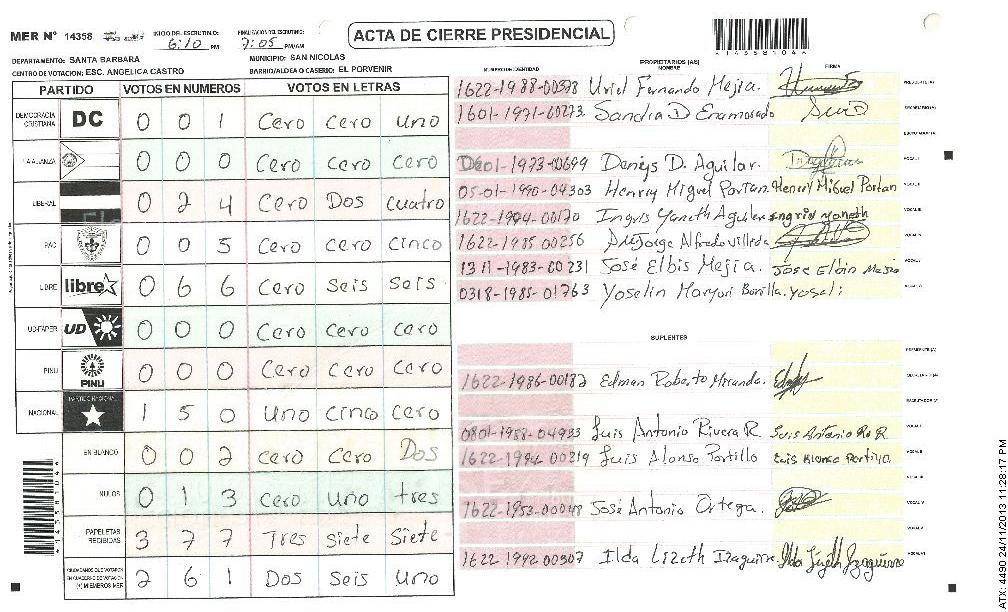 MER N° 14358
INICIO DEL ESCRUTINIO: 6:10 PM
FINALIZACION DEL ESCRUTINIO: 7:05 PM/AM
ACTA DE CIERRE PRESIDENCIAL
1435810 4
DEPARTAMENTO: SANTA BARBARA
MUNICIPIO: SAN NICOLAS
CENTRO DE VOTACION: ESC. ANGELICA CASTRO
BARRIO/ALDEA O CASERIO: EL PORVENIR
PARTIDO VOTOS EN NUMEROS VOTOS EN LETRAS
DEMOCRACIA CRISTIANA DC 0 0 1 Cero cero uno
LA ALIANZA 0 0 0 Cero cero cero
LIBERAL 0 2 4 Cero Dos cuatro
PAC 0 0 5 Cero cero cinco
LIBRE libre 0 6 6 Cero seis seis
UD-FAPER UD 0 0 0 Cero cero cero
PINU PINU 0 0 0 Cero cero cero
NACIONAL 1 5 0 Uno cinco cero
EN BLANCO 0 0 2 cero Cero Dos
NULOS 0 1 3 cero uno tres
PAPELETAS RECIBIDAS 3 7 7 Tres siete Siete
CIUDADANOS QUE VOTARON EN CUADERNO DE VOTACION (+) MIEMBROS MER 2 6 1 Dos seis uno
NUMERO DE IDENTIDAD PROPIETARIOS (AS) NOMBRE FIRMA
1622-1988-00578 Uriel Fernando Mejia. PRESIDENTE (A)
1601-1971-00273 Sandra D Enamorado SECRETARIO (A)
ESCRUTADOR (A)
0601-1973-00699 Denys D. Aguilar. VOCAL I
05-01-1990-04303 Henrry Miguel Portan. Henrry Miguel Portan VOCAL II
1622-1994-00170 Ingris Yaneth Aguilar ingrid yaneth VOCAL III
1622-1985-00256 Jorge Alfredo Villeda VOCAL IV
1311-1983-00231 José Elbis Mejia. VOCAL V
0318-1985-01763 Yoselin Maryori Bonilla. yoseli VOCAL VI
SUPLENTES
PRESIDENTE (A)
1622-1986-00182 Edman Roberto Miranda. SECRETARIO (A)
ESCRUTADOR (A)
0801-1988-04933 Luis Antonio Rivera R. Luis Antonio Ro R. VOCAL I
1622-1994-00219 Luis Alonso Portillo Luis Alonso Portillo VOCAL II
VOCAL III
1622-1953-00048 José Antonio Ortega. VOCAL IV
VOCAL V
1622-1992-00307 Ilda Lizeth Izaguirre VOCAL VI
ATX: 4490 24/11/2013 11:28:17 PM